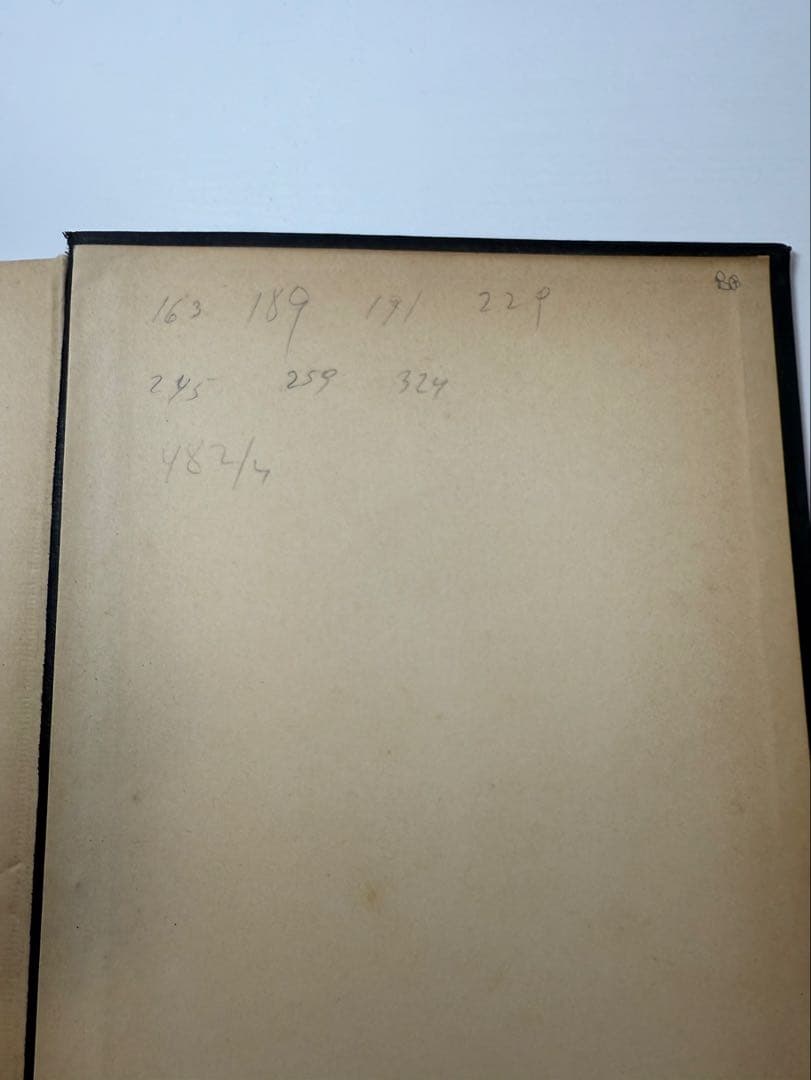 163 189 191 229
245 259 324
482/4